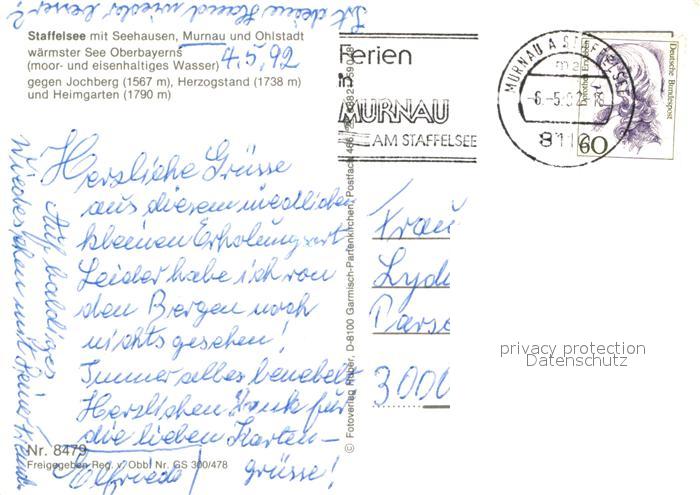 Ist deine Hand wieder besser?
Staffelsee mit Seehausen, Murnau und Ohlstadt
wärmster See Oberbayerns
(moor- und eisenhaltiges Wasser)
gegen Jochberg (1567 m), Herzogstand (1738 m)
und Heimgarten (1790 m)
4.5.92
Herzliche Grüsse
aus diesem niedlichen
kleinen Erholungsort
Leider habe ich von
den Bergen noch
nichts gesehen!
Immer alles benebelt
Herzlichen Dank für
die lieben Karten-
grüsse!
Elfriede
Auf baldiges
Wiedersehen mit
Nr. 8479
Freigegeben Reg. v. Obb. Nr. GS 300/478
© Fotoverlag Huber, D-8100 Garmisch-Partenkirchen, Postfach
Ferien
in
MURNAU
AM STAFFELSEE
MURNAU A STAFFELSEE
-6.-5.92
8110
Deutsche Bundespost
60
Frau
3000
privacy protection
Datenschutz